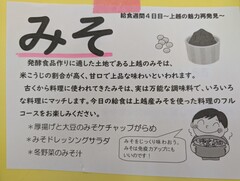 給食週間4日目～上越の魅力再発見～
みそ
発酵食品作りに適した土地である上越のみそは、
米こうじの割合が高く、甘口で上品な味わいといわれます。
古くから料理に使われてきたみそは、実は万能な調味料で、いろい
ろな料理にマッチします。今日の給食は上越産みそを使った料理のフル
コースをお楽しみください。
＊厚揚げと大豆のみそケチャップがらめ
＊みそドレッシングサラダ
＊冬野菜のみそ汁
みそをじっくり味わおう。
みそは免疫力アップにも
いいのです！